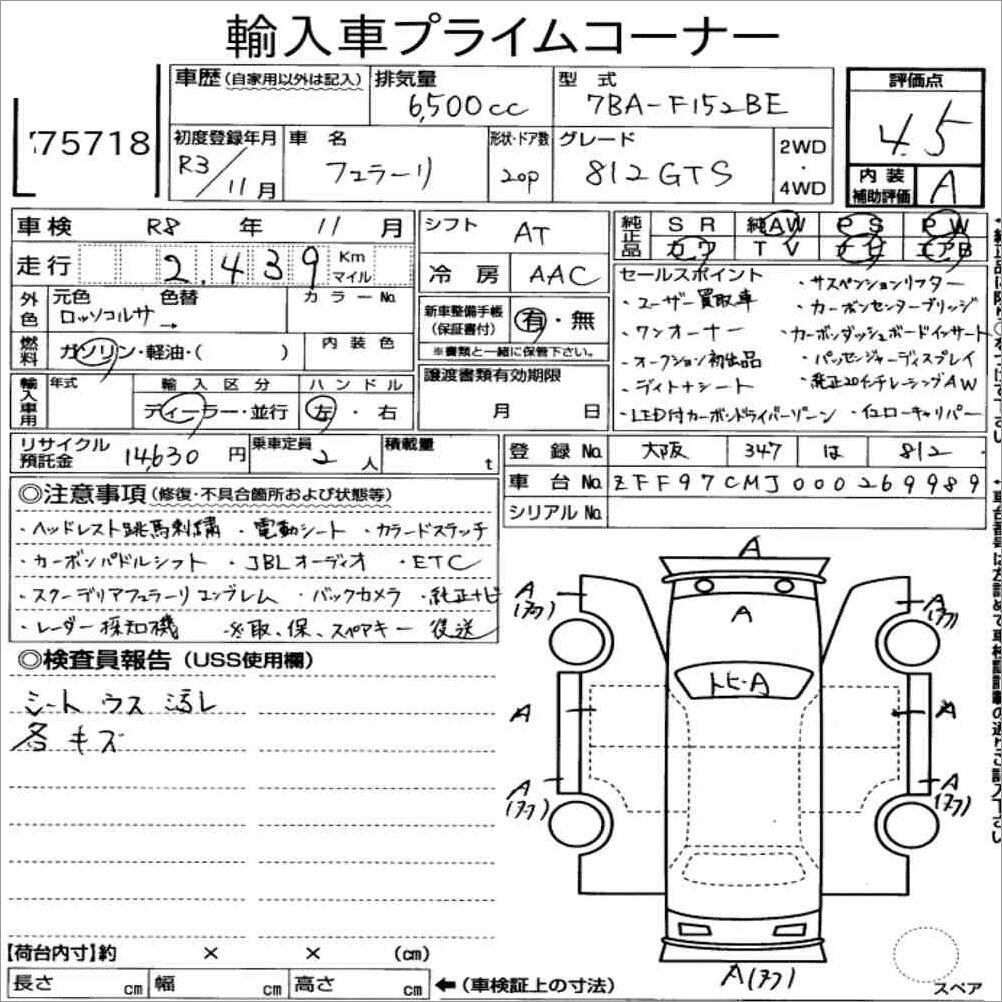 輸入車プライムコーナー
75718
車歴(自家用以外は記入)
排気量 6,500cc
型式 7BA-F152BE
評価点 4.5
初度登録年月 R3/11月
車名 フェラーリ
形状・ドア数 2OP
グレード 812GTS
2WD・4WD
内装補助評価 A
車検 R8年 11月
シフト AT
純正品 SR 純AW PS PW
カワ TV ナビ エアB
走行 2.439 Km マイル
冷房 AAC
セールスポイント ・サスペンションリフター
・ユーザー買取車 ・カーボンセンターブリッジ
外色 元色 ロッソコルサ → 色替 カラーNo.
新車整備手帳(保証書付) 有・無
※書類と一緒に保管下さい。
・ワンオーナー ・カーボンダッシュボードインサート
燃料 ガソリン・軽油・( ) 内装色
・オークション初出品 ・パッセンジャーディスプレイ
輸入車用 年式 輸入区分 ハンドル
ディーラー・並行 左・右
譲渡書類有効期限
月 日
・デイトナシート ・純正20インチレーシングAW
・LED付カーボンドライバーゾーン ・イエローキャリパー
リサイクル預託金 14,630円 乗車定員 2人 積載量 t
登録No. 大阪 347 は 812
車台No. ZFF97CMJ000269989
シリアルNo.
◎注意事項(修復・不具合箇所および状態等)
・ヘッドレスト跳馬刺繍 ・電動シート ・カラードステッチ
・カーボンパドルシフト ・JBLオーディオ ・ETC
・スクーデリアフェラーリエンブレム ・バックカメラ ・純正ナビ
・レーダー探知機 ※取、保、スペアキー 後送
◎検査員報告(USS使用欄)
シート ウス汚レ
各キズ
A
A
(フク)
A
A
(フク)
トヒ・A
A
A
A
(フク)
A
(フク)
A(フク)
【荷台内寸】約 × × (cm)
長さ cm 幅 cm 高さ cm ←(車検証上の寸法)
スペア